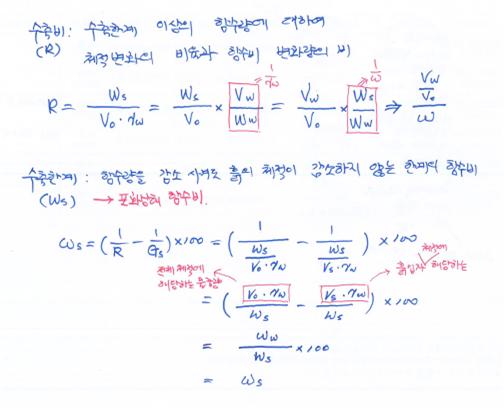 수축비: 수축한계 이상의 함수량에 대하여
(R) 체적변화의 비율과 함수비 변화량의 비
R = Ws / (V₀·γw) = Ws / V₀ × Vw / Ww (= 1/γw) = Vw / V₀ × Ws / Ww (⇒ 1/ω) ⇒ (Vw / V₀) / ω
수축한계: 함수량을 감소 시켜도 흙의 체적이 감소하지 않는 한계의 함수비
(Ws) → 포화상태 함수비.
ωs = (1/R − 1/Gs) × 100 = (1 / (Ws / (V₀·γw)) − 1 / (Ws / (Vs·γw))) × 100
전체 체적에 해당하는 물중량
흙입자 체적에 해당하는
= (V₀·γw / Ws − Vs·γw / Ws) × 100
= Ww / Ws × 100
= ωs